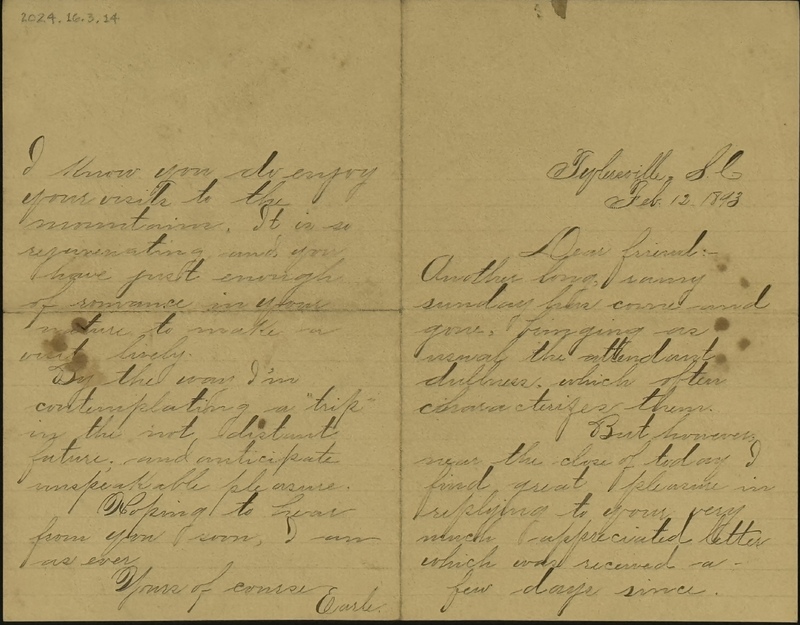 2024.16.3.14
Tylersville, S C
Feb. 12. 1893
Dear friend:-
Another long, rainy
sunday has come and
gone, bringing as
usual the attendant
dullness, which often
characterizes them.
But however,
near the close of today I
find great pleasure in
replying to your very
much appreciated letter
which was received a-
few days since.
I know you do enjoy
your visits to the
mountains. It is so
rejuvenating and you
have just enough
of romance in your
nature to make a
visit lively.
By the way I'm
contemplating a "trip"
in the not distant
future. and anticipate
unspeakable pleasure.
Hoping to hear
from you soon, I am
as ever
Yours of course
Earle.